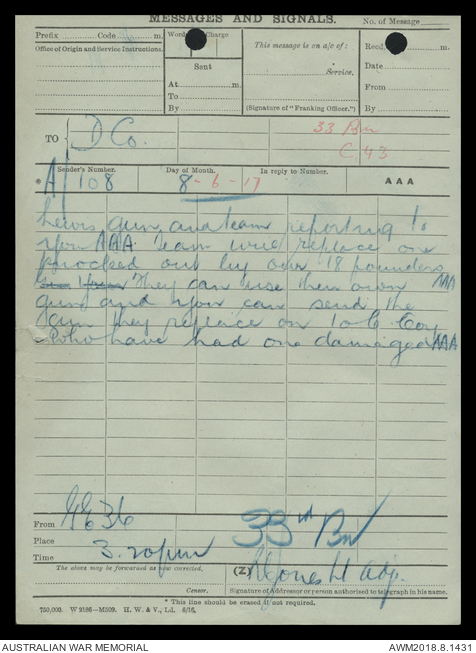 MESSAGES AND SIGNALS.
No. of Message
Prefix Code m.
Words Charge
This message is on a/c of :
Recd. m.
Office of Origin and Service Instructions.
Sent
Date
Service.
At m.
From
To
By
(Signature of "Franking Officer.")
By
TO
D Co.
33 Bn
C 43
Sender's Number.
Day of Month.
In reply to Number.
* A/108
8-6-17
AAA
Lewis gun and team reporting to
you AAA Team will replace one
knocked out by our 18 pounders
They can use their own AAA
gun and you can send the
gun they replace on to C Coy
who have had one damaged AAA
From
36
Place
33rd Bn
Time
3.20pm
The above may be forwarded as now corrected.
(Z)
Jones Lt Adj.
Censor.
Signature of Addressor or person authorised to telegraph in his name.
* This line should be erased if not required.
750,000. W 2186—M509. H. W. & V., Ld. 6/16.
AUSTRALIAN WAR MEMORIAL
AWM2018.8.1431